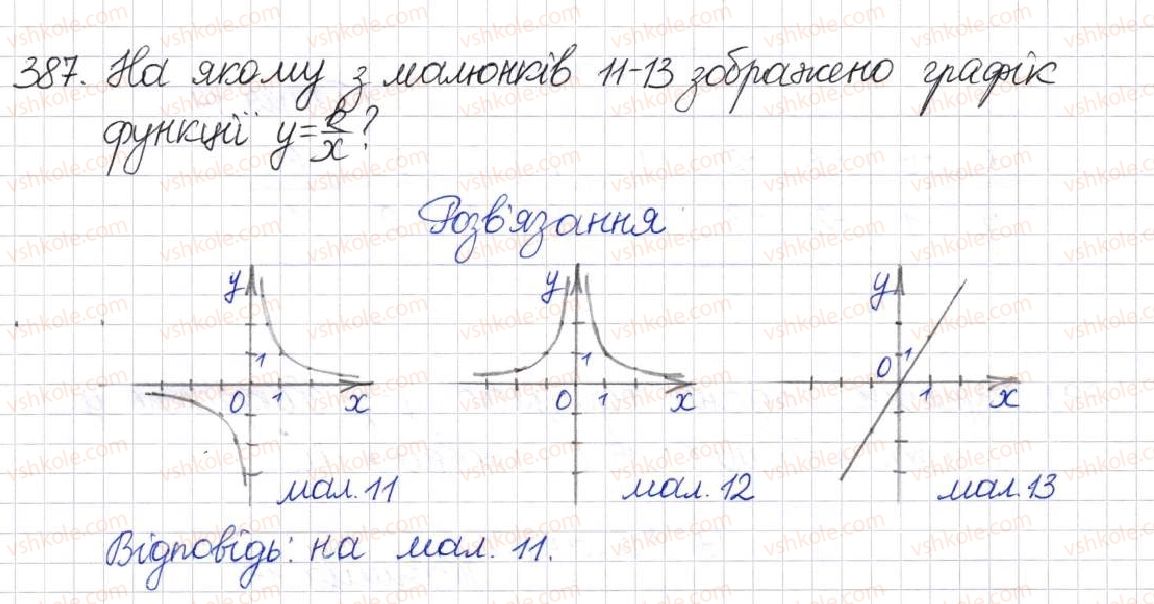 387. На якому з малюнків 11-13 зображено графік
функції y=k/x?
Розв'язання
y
1
0 1 x
мал. 11
y
1
0 1 x
мал. 12
y
1
0
1 x
мал. 13
Відповідь: на мал. 11.